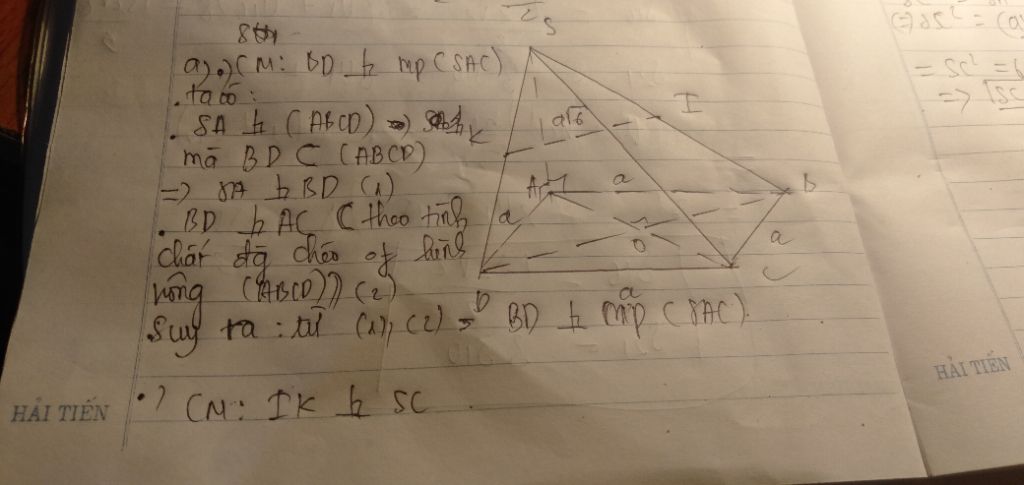 S
a) •) CM: BD ⊥ mp (SAC)
. ta có:
. SA ⊥ (ABCD) =>
mà BD ⊂ (ABCD)
=> SA ⊥ BD (1)
. BD ⊥ AC ( theo tính
chất đg chéo of hình
vông (ABCD)) (2)
Suy ra: từ (1), (2) => BD ⊥ mp (SAC)
•) CM: IK ⊥ SC
K
I
a√6
A
a
B
a
O
a
D
a
C
HẢI TIẾN
HẢI TIẾN
= SC²
=> SC